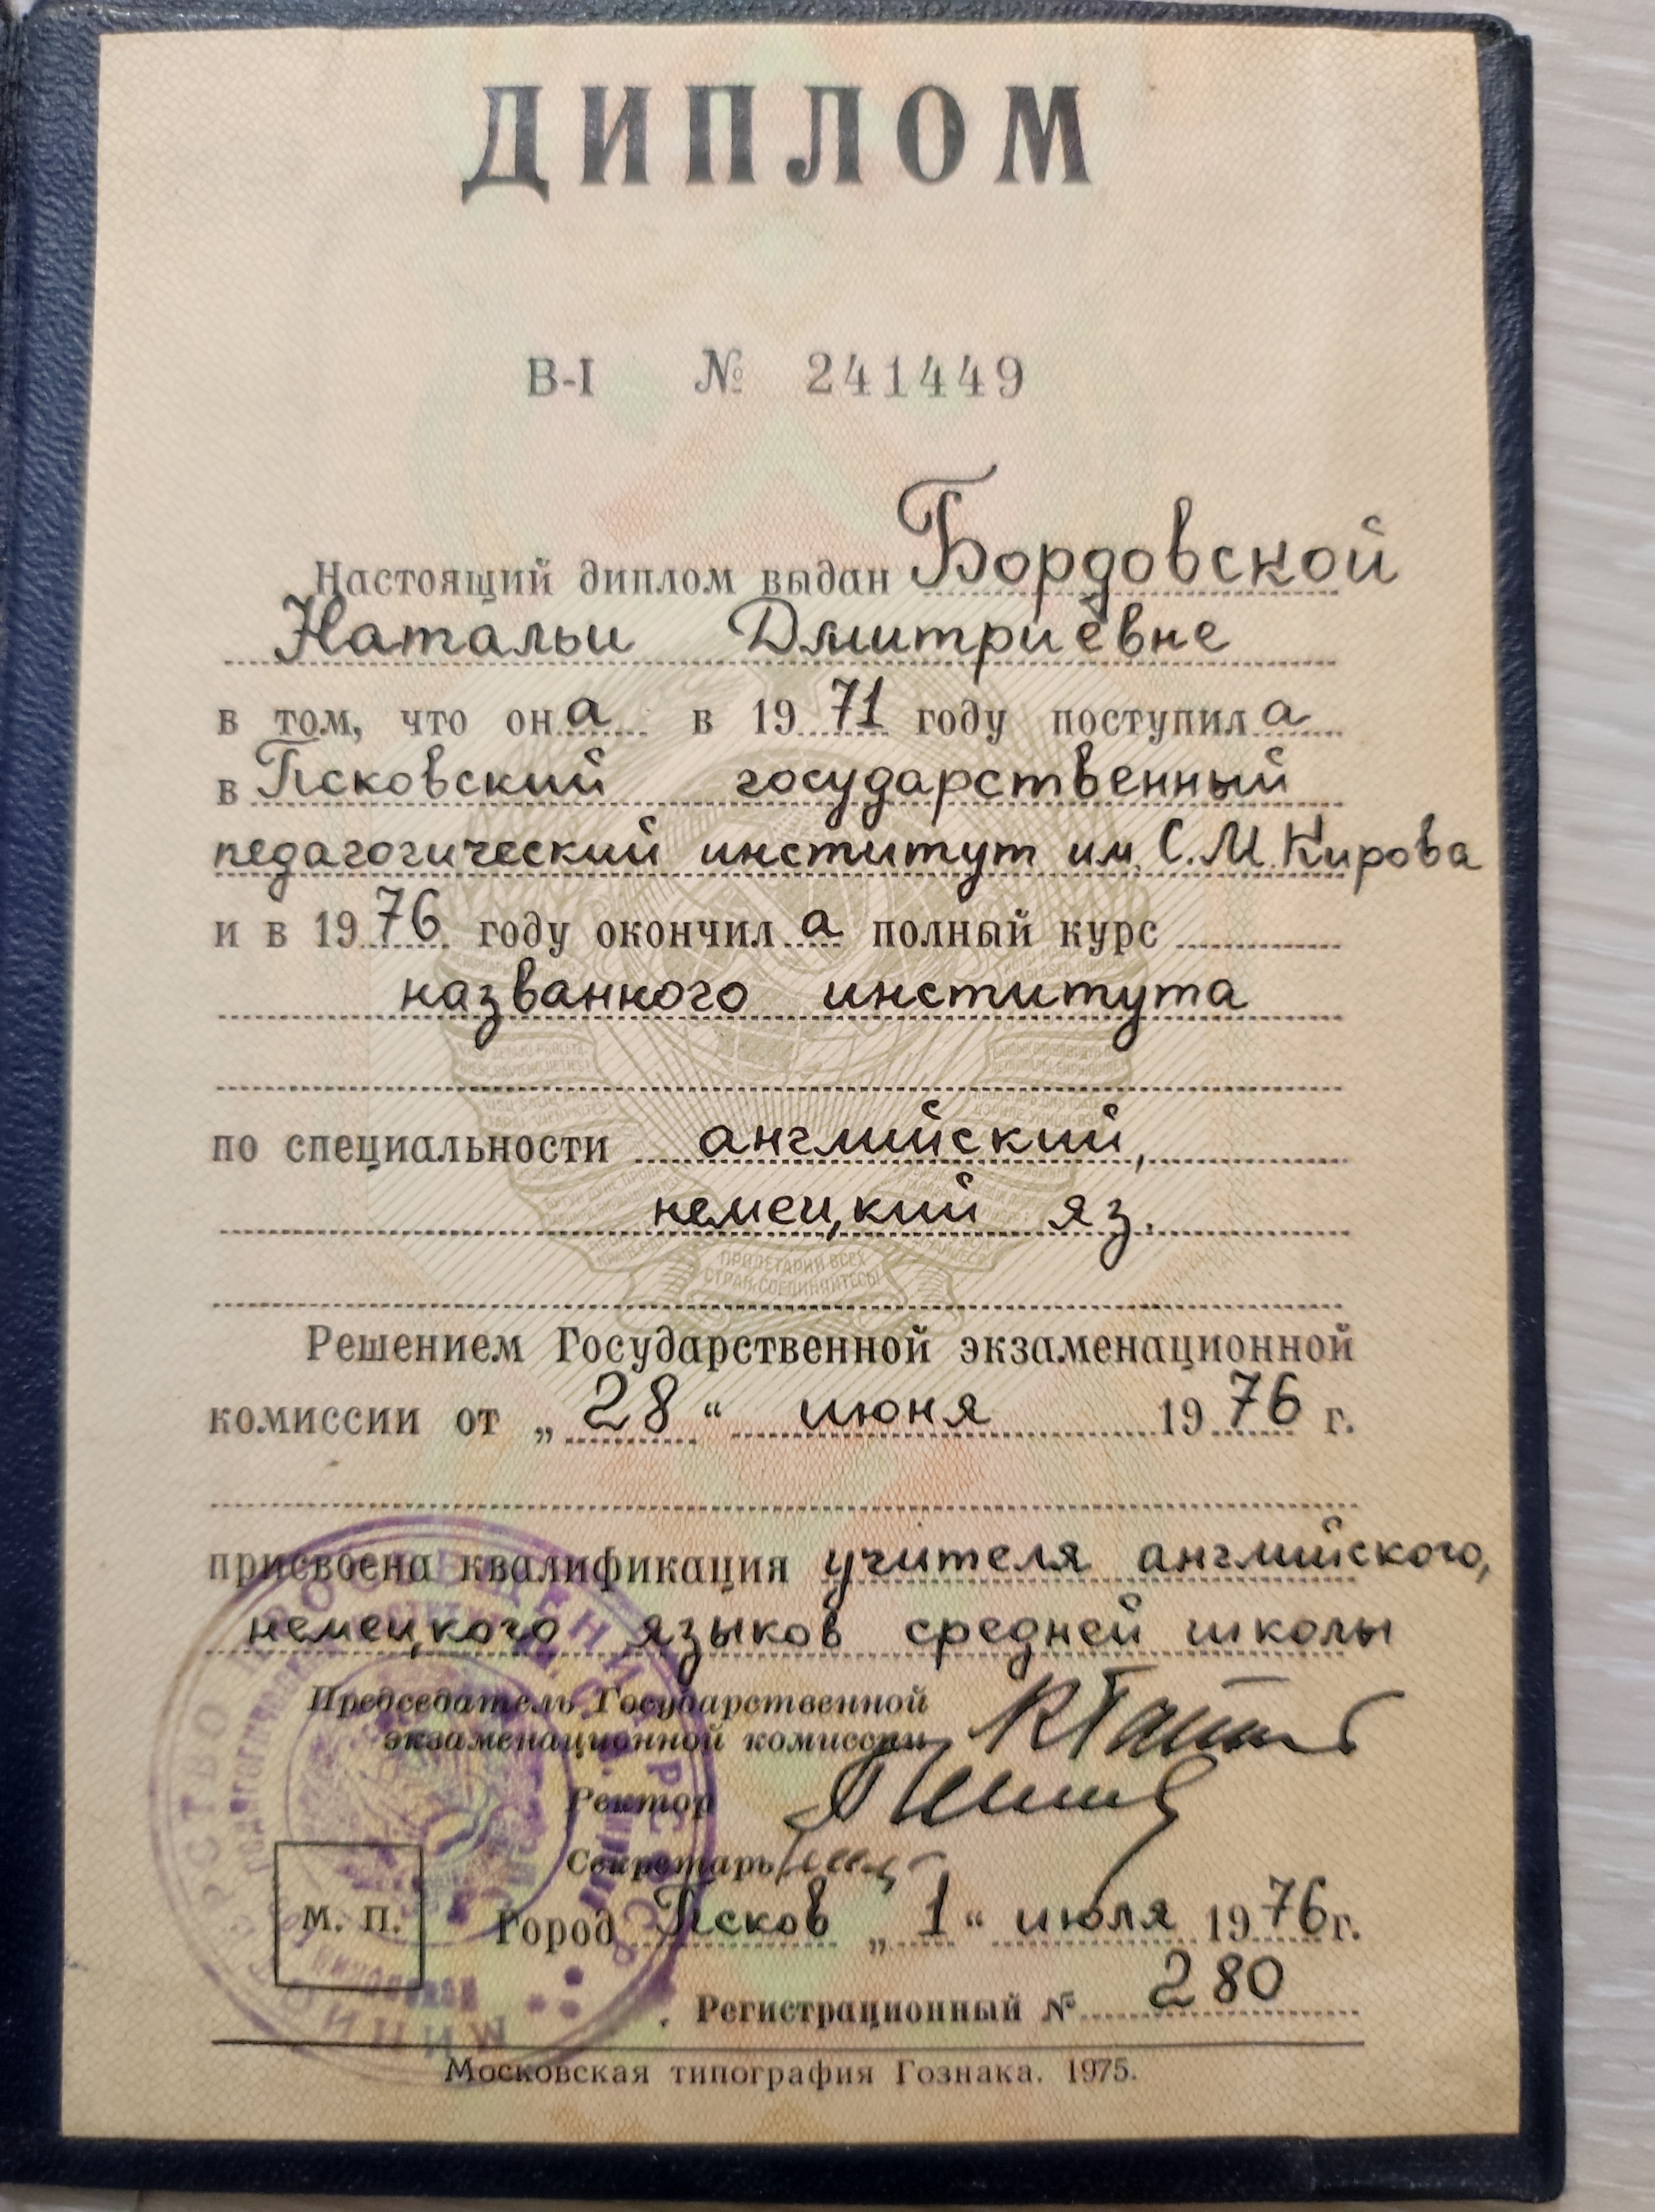 ДИПЛОМ
В-I № 241449
Настоящий диплом выдан Бордовской
Натальи Дмитриевне
в том, что она в 1971 году поступила
в Псковский государственный
педагогический институт им. С.М.Кирова
и в 1976 году окончила полный курс
названного института
по специальности английский,
немецкий яз.
ПРОЛЕТАРИИ ВСЕХ
СТРАН, СОЕДИНЯЙТЕСЬ!
Решением Государственной экзаменационной
комиссии от „28“ июня 1976 г.
присвоена квалификация учителя английского,
немецкого языков средней школы
Председатель Государственной
экзаменационной комиссии
Ректор
Секретарь
М. П.
Город Псков „1“ июля 1976г.
Регистрационный № 280
Московская типография Гознака. 1975.